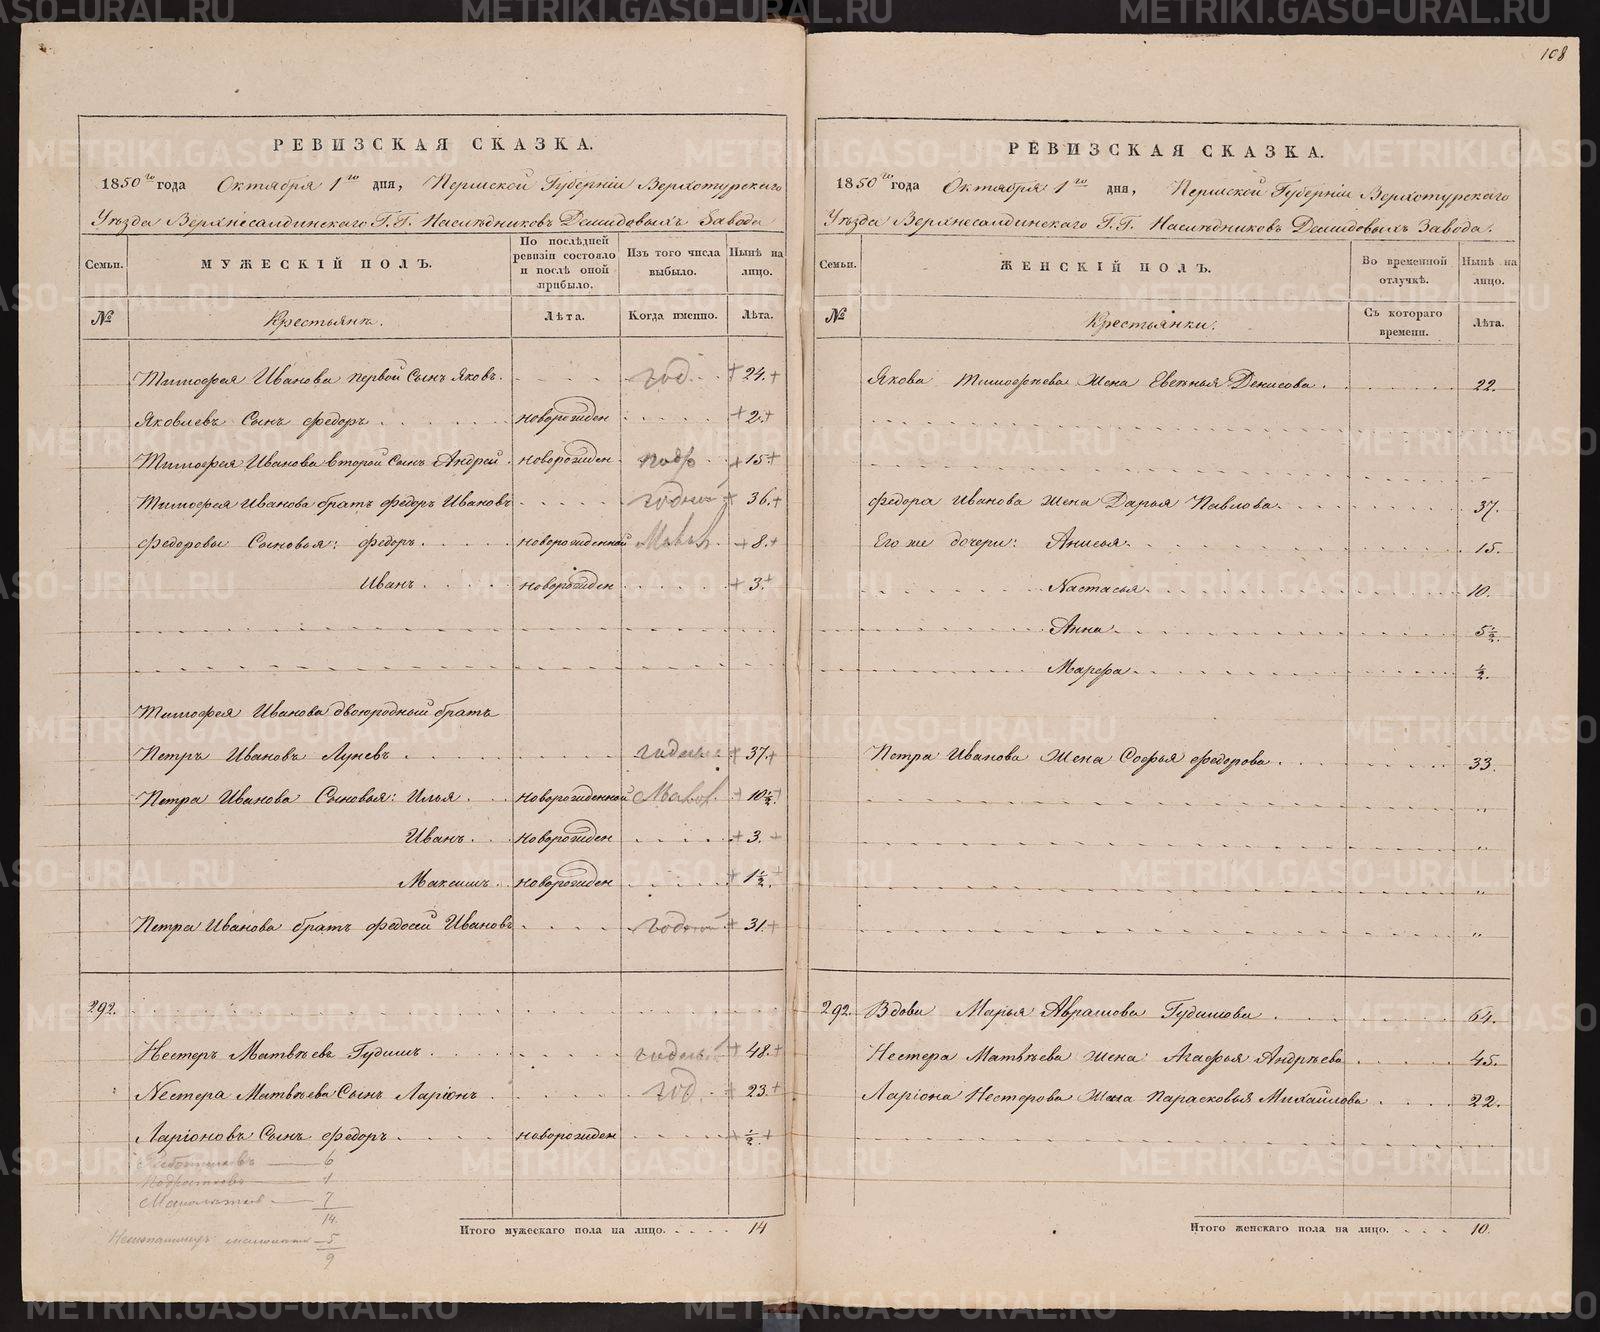 108
РЕВИЗСКАЯ СКАЗКА.
1850го года Октября 1го дня, Пермской Губерніи Верхотурскаго
Уѣзда Верхнесалдинскаго Г.Г. Наслѣдниковъ Демидовыхъ Завода
Семьи. МУЖЕСКІЙ ПОЛЪ. По послѣдней ревизіи состояло и послѣ оной прибыло. Изъ того числа выбыло. Нынѣ на лицо.
№ Крестьяне. Лѣта. Когда именно. Лѣта.
Тимофея Иванова первой Сынъ Яковъ. год. 24.
Яковлевъ Сынъ Федоръ новорожден 2.
Тимофея Иванова второй Сынъ Андрей новорожден подр 15
Тимофея Иванова братъ Федоръ Ивановъ годной 36.
Федоровы Сыновья: Федоръ новорожденной 8.
Иванъ новорожден 3.
Тимофея Иванова двоюродный братъ
Петръ Ивановъ Луневъ 37.
Петра Иванова Сыновья: Илья новорожденной 10½
Иванъ новорожден 3.
Максимъ новорожден 1½
Петра Иванова братъ Федосей Ивановъ годной 31.
292.
Нестеръ Матвѣевъ Гудимъ 48.
Нестера Матвѣева Сынъ Ларіонъ год. 23.
Ларіоновъ Сынъ Федоръ новорожден ½
Работниковъ 6
Подростковъ 1
Малолѣтовъ 7
14.
5
9
Итого мужескаго пола на лицо. 14
РЕВИЗСКАЯ СКАЗКА.
1850го года Октября 1го дня, Пермской Губерніи Верхотурскаго
Уѣзда Верхнесалдинскаго Г.Г. Наслѣдниковъ Демидовыхъ Завода.
Семьи. ЖЕНСКІЙ ПОЛЪ. Во временной отлучкѣ. Нынѣ на лицо.
№ Крестьянки. Съ котораго времени. Лѣта.
Якова Тимофѣева Жена Евгенья Денисова 22.
Федора Иванова Жена Дарья Павлова 37.
Его же дочери: Анисья 15.
Настасья 10.
Анна 5½
Марфа ½.
Петра Иванова Жена Софья Федорова 33.
292. Вдова Марья Абрамова Гудимова 64.
Нестера Матвѣева Жена Агафья Андрѣева 45.
Ларіона Нестерова Жена Парасковья Михайлова 22.
Итого женскаго пола на лицо. 10.
METRIKI.GASO-URAL.RU